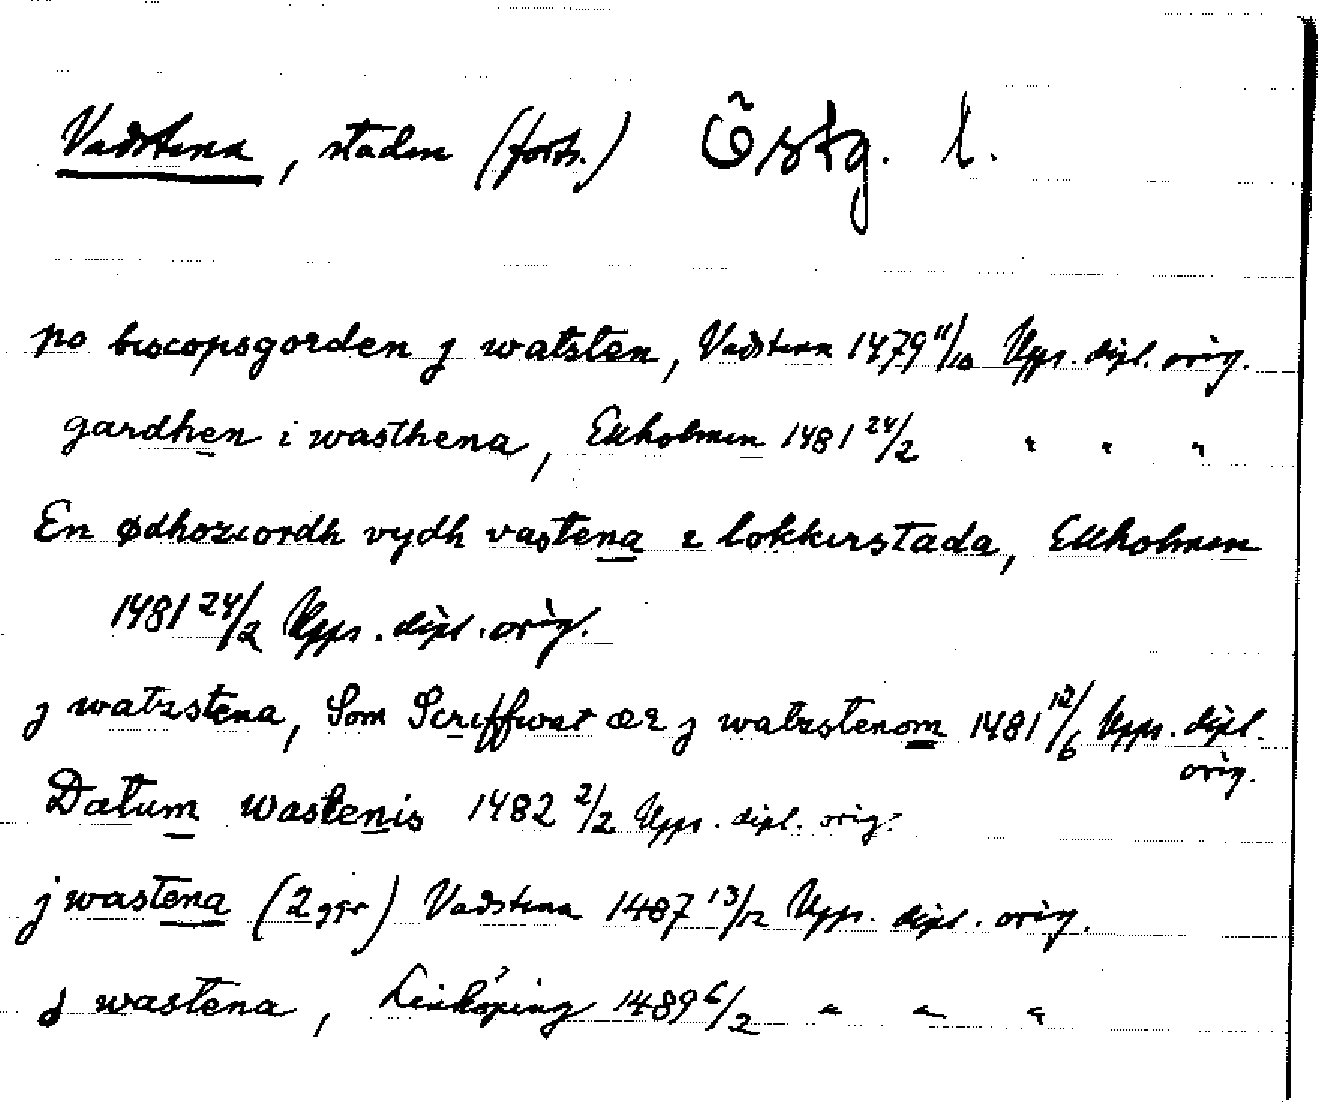 Vadstena, staden (forts.) Östg. l.
po biscopsgorden j watsten, Vadstena 1479 11/10 Upps. dipl. orig.
gardhen i wasthena, Ekholmen 1481 24/2 " " "
En ødhoziordh vydh vastena i lokkirstada, Ekholmen
1481 24/2 Upps. dipl. orig.
j watzstena, Som Scriffwat ær j watzstenom 1481 12/6 Upps. dipl.
orig.
Datum wastenis 1482 2/2 Upps. dipl. orig.
j wastena (2 ggr) Vadstena 1487 13/12 Upps. dipl. orig.
J wastena, Linköping 1489 6/2 " " "